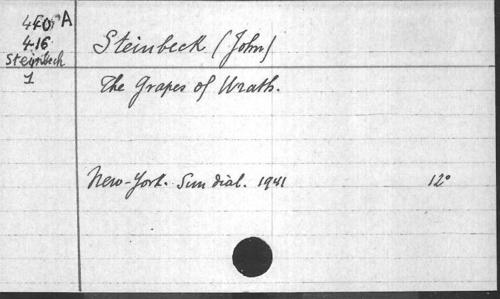 416
Steinbeck
1
Steinbeck (John)
The Grapes of Wrath.
New-York. Sun dial. 1941 12°